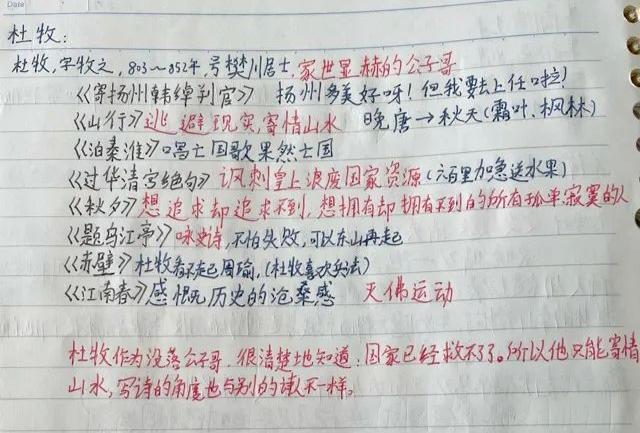 Date
杜牧:
杜牧,字牧之,803~852年,号樊川居士,家世显赫的公子哥
《寄扬州韩绰判官》 扬州多美好呀!但我要去上任啦!
《山行》逃避现实,寄情山水 晚唐→秋天(霜叶、枫林)
《泊秦淮》唱亡国歌果然亡国
《过华清宫绝句》讽刺皇上浪废国家资源(六百里加急送水果)
《秋夕》想追求却追求不到,想拥有却拥有不到的所有孤单寂寞的人
《题乌江亭》咏史诗,不怕失败,可以东山再起
《赤壁》杜牧看不起周瑜,(杜牧喜欢兵法)
《江南春》感慨历史的沧桑感 灭佛运动
杜牧作为没落公子哥,很清楚地知道:国家已经救不了了。所以他只能寄情
山水,写诗的角度也与别的诗人不一样。